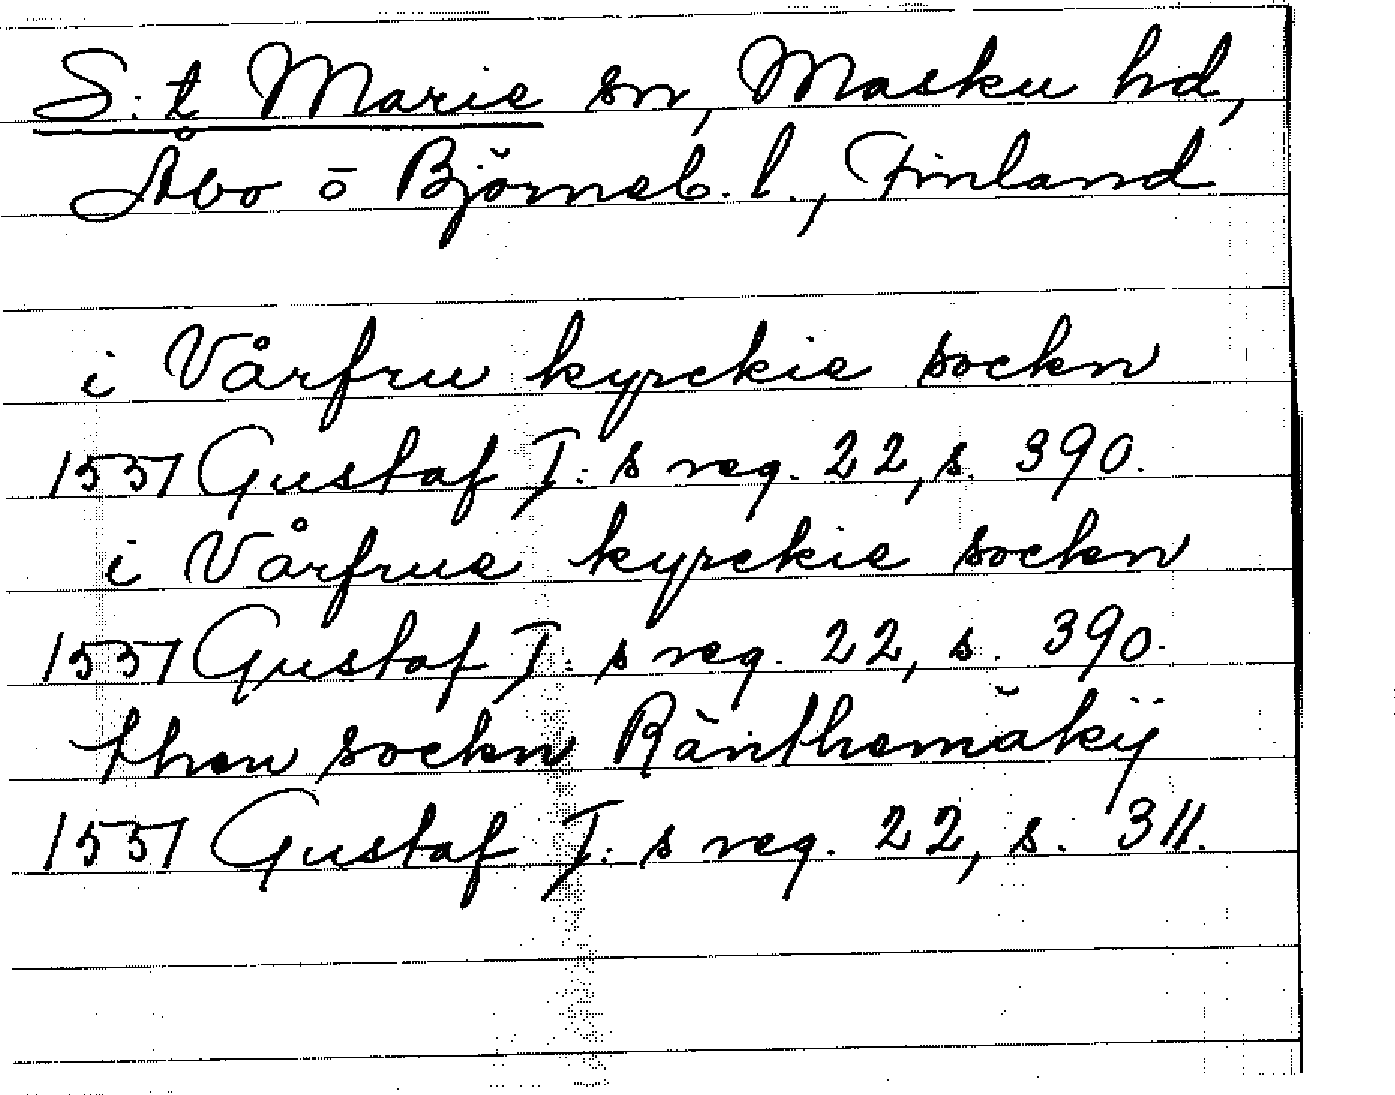 S:t Marie sn, Masku hd,
Åbo o Björneb. l., Finland
i Vårfru kyrckie sockn
1551 Gustaf I:s reg. 22, s. 390.
i Vårfrue kyrckie sockn
1551 Gustaf I:s reg. 22, s. 390.
then sockn Ränthemäkij
1551 Gustaf I:s reg. 22, s. 311.